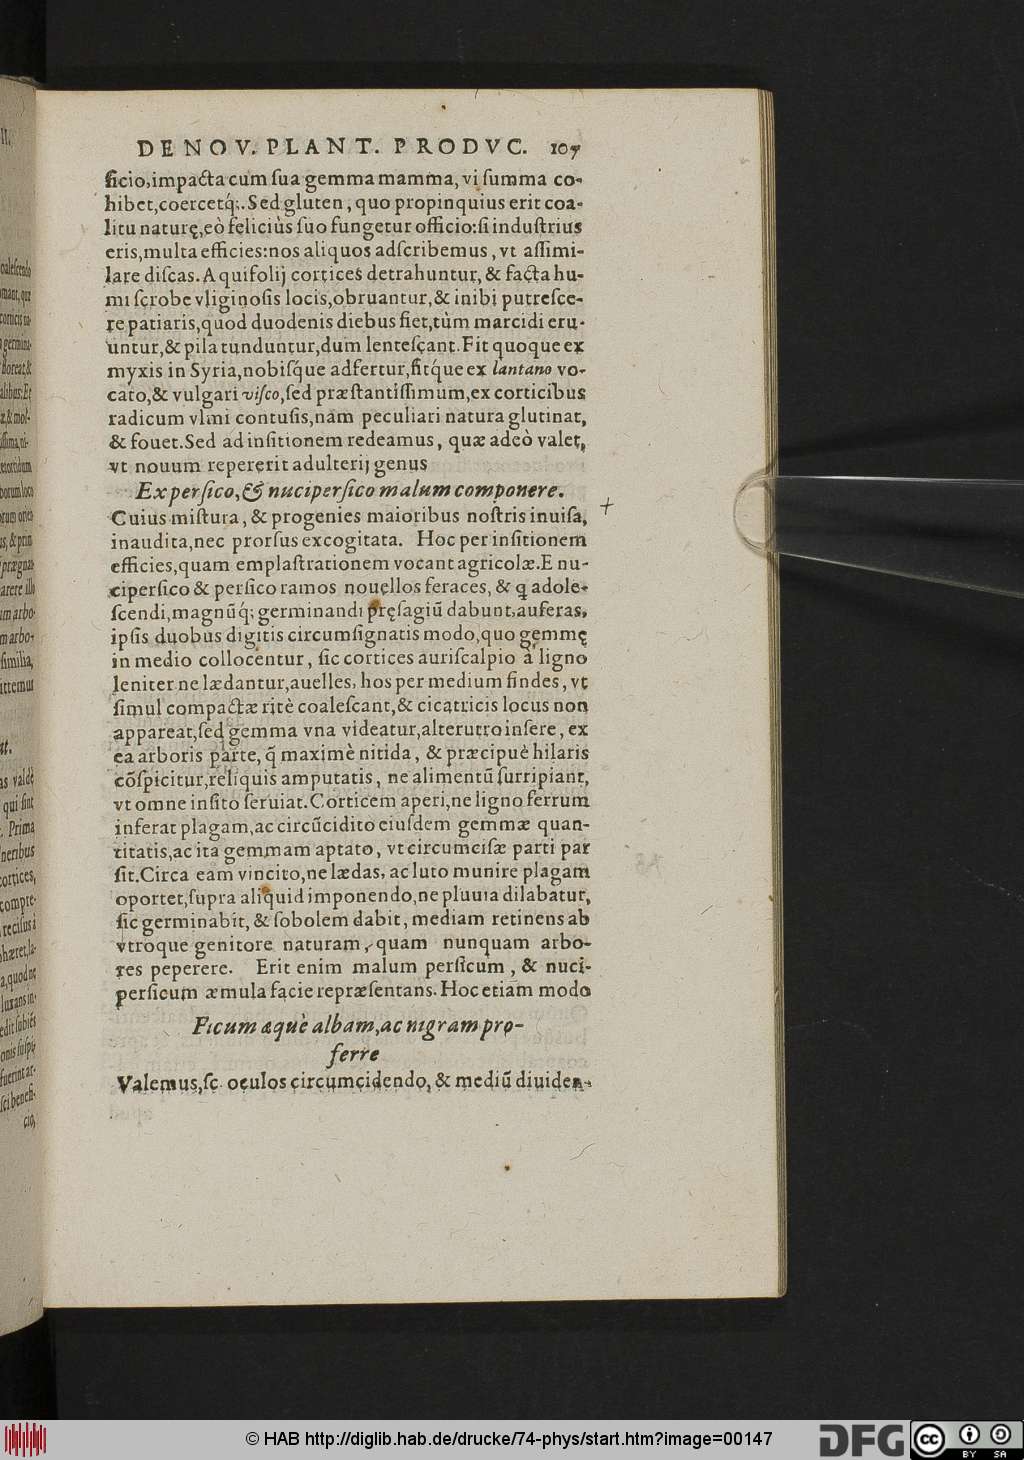 DE NOV. PLANT. PRODVC. 107
ficio,impacta cum ſua gemma mamma, vi ſumma co-
hibet,coercetq́;. Sed gluten, quo propinquius erit coa-
litu naturę,eò feliciùs ſuo fungetur officio:ſi induſtrius
eris,multa efficies:nos aliquos adſcribemus, vt aſſimi-
lare diſcas. Aquifolij cortices detrahuntur, & facta hu-
mi ſcrobe vliginoſis locis,obruantur,& inibi putreſce-
re patiaris,quod duodenis diebus fiet,tùm marcidi eru-
untur,& pila tunduntur,dum lenteſcant. Fit quoque ex
myxis in Syria,nobiſq́ue adfertur,fitq́ue ex lantano vo-
cato,& vulgari viſco,ſed præſtantiſſimum,ex corticibus
radicum vlmi contuſis,nam peculiari natura glutinat,
& fouet. Sed ad inſitionem redeamus, quæ adeò valet,
vt nouum repererit adulterij genus
Ex perſico,& nuciperſico malum componere.
Cuius miſtura, & progenies maioribus noſtris inuiſa,
inaudita,nec prorſus excogitata. Hoc per inſitionem
efficies,quam emplaſtrationem vocant agricolæ. E nu-
ciperſico & perſico ramos nouellos feraces, & q adole-
ſcendi,magnũq́; germinandi pręſagiũ dabunt,auferas,
ipſis duobus digitis circumſignatis modo,quo gemmę
in medio collocentur, ſic cortices auriſcalpio à ligno
leniter ne lædantur,auelles, hos per medium findes, vt
ſimul compactæ ritè coaleſcant,& cicatricis locus non
appareat,ſed gemma vna videatur,alterutro inſere, ex
ea arboris parte, q̃ maximè nitida, & præcipuè hilaris
cõſpicitur,reliquis amputatis, ne alimentũ ſurripiant,
vt omne inſito ſeruiat. Corticem aperi,ne ligno ferrum
inferat plagam,ac circũcidito eiuſdem gemmæ quan-
titatis,ac ita gemmam aptato, vt circumciſæ parti par
ſit. Circa eam vincito,ne lædas, ac luto munire plagam
oportet,ſupra aliquid imponendo,ne pluuia dilabatur,
ſic germinabit, & ſobolem dabit, mediam retinens ab
vtroque genitore naturam, quam nunquam arbo-
res peperere. Erit enim malum perſicum, & nuci-
perſicum æmula facie repræſentans. Hoc etiam modo
Ficum æquè albam,ac nigram pro-
ferre
Valemus,ſc. oculos circumcidendo, & mediũ diuiden-
© HAB http://diglib.hab.de/drucke/74-phys/start.htm?image=00147
DFG
cc BY SA